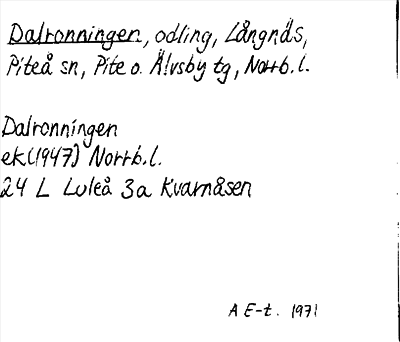 Dalronningen, odling, Långnäs,
Piteå sn, Pite o. Älvsby tg, Norrb. l.
Dalronningen
ek. (1947) Norrb. l.
24 L Luleå 3a Kvarnåsen
A E-t. 1971